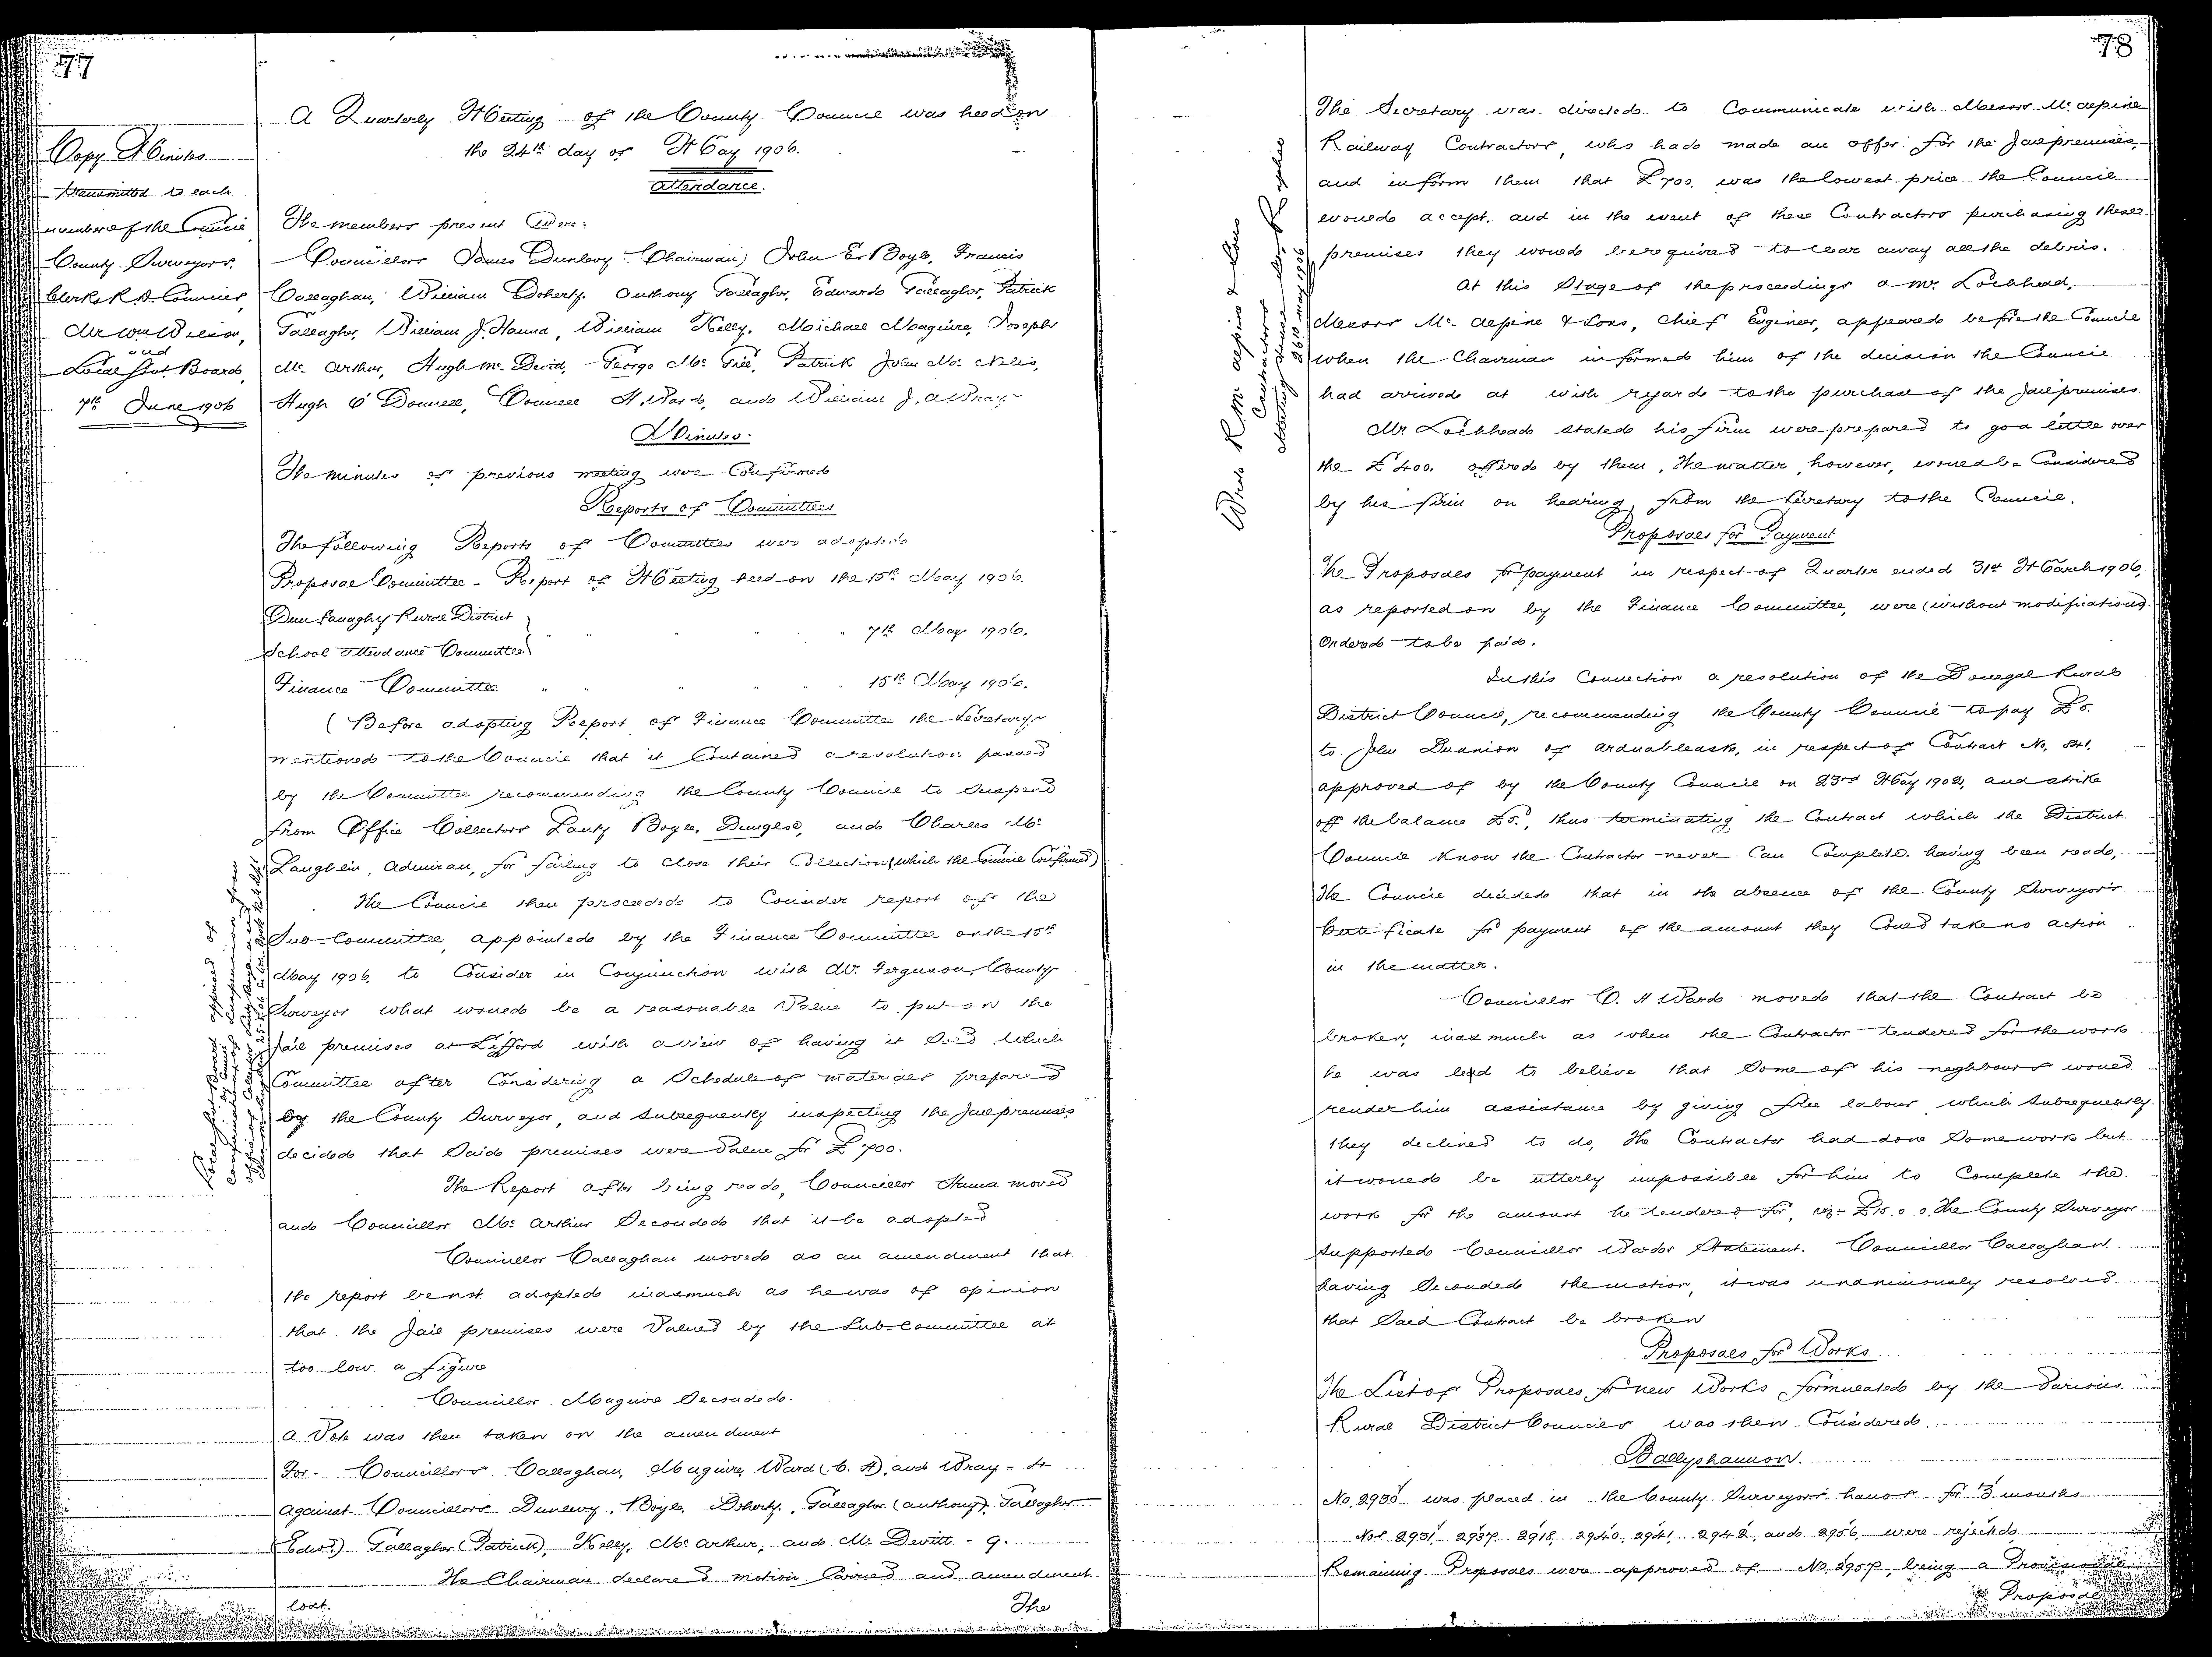 77
Copy Minutes
transmitted to each
member of the Council
County Surveyors.
Clerks R. D. Councils,
Mr Wm Wilson,
and
Local Govt. Board,
7th June 1906
A Quarterly Meeting of the County Council was held on
the 24th day of May 1906.
Attendance.
The members present were:
Councillors James Dunlevy (Chairman) John E. Boyle, Francis
Callaghan, William Doherty, Anthony Gallagher, Edward Gallagher, Patrick
Gallagher, William J. Hanna, William Kelly, Michael Maguire, Joseph
Mc Arthur, Hugh Mc Devitt, George Mc Gill, Patrick John Mc Nelis,
Hugh O'Donnell, Connell H. Ward, and William J. A. Wray.
Minutes.
The minutes of previous meeting were Confirmed
Reports of Committees
The following Reports of Committees were adopted
Proposal Committee - Report of Meeting held on the 15th May 1906.
Dunfanaghy Rural District
School Attendance Committee } " " " " 7th May 1906.
Finance Committee " " " " 15th May 1906.
(Before adopting Report of Finance Committee the Secretary
mentioned to the Council that it Contained a resolution passed
by the Committee recommending the County Council to Suspend
from Office Collectors Lanty Boyle, Dungloe, and Charles Mc
Laughlin, Admiran, for failing to close their Collection (which the Council Confirmed)
The Council then proceeded to Consider report of the
Sub-Committee, appointed by the Finance Committee on the 15th
May 1906, to Consider in Conjunction with Mr. Ferguson, County
Surveyor what would be a reasonable Value to put on the
Jail premises at Lifford with a view of having it Sold which
Committee after Considering a Schedule of materials prepared
by the County Surveyor, and subsequently inspecting the Jail premises
decided that Said premises were Value for £700.
The Report after being read, Councillor Hanna moved
and Councillor Mc Arthur Seconded that it be adopted
Councillor Callaghan moved as an amendment that
the report be not adopted inasmuch as he was of opinion
that the Jail premises were Valued by the Sub-Committee at
too low a figure
Councillor Maguire Seconded.
A Vote was then taken on the amendment
For - Councillors Callaghan, Maguire, Ward (C. H), and Wray = 4
Against - Councillors Dunlevy, Boyle, Doherty, Gallagher (Anthony), Gallagher
(Edwd.) Gallagher (Patrick), Kelly, Mc Arthur, and Mc Devitt - 9.
The Chairman declared motion Carried and amendment
lost.
The
78
Wrote R. Mc Alpine & Sons
Contractors
26th May 1906
The Secretary was directed to Communicate with Messrs Mc Alpine
Railway Contractors, who had made an offer for the Jail premises,
and inform them that £700. was the lowest price the Council
would accept, and in the event of these Contractors purchasing these
premises they would be required to clear away all the debris.
At this Stage of the proceedings a Mr. Lochhead,
Messrs Mc Alpine & Sons, Chief Engineer, appeared before the Council
when the Chairman informed him of the decision the Council
had arrived at with regard to the purchase of the Jail premises
Mr. Lochhead stated his firm were prepared to go a little over
the £400. offered by them, The matter, however, would be Considered
by his firm on hearing from the Secretary to the Council.
Proposals for Payment
The Proposals for payment in respect of Quarter ended 31st March 1906,
as reported on by the Finance Committee, were (without modification)
Ordered to be paid.
In this Connection a resolution of the Donegal Rural
District Council, recommending the County Council to pay £5.
to John Dunnion of Ardnableask, in respect of Contract No. 841.
approved of by the County Council on 23rd May 1902, and strike
off the balance £5., thus terminating the Contract which the District
Council Know the Contractor never Can Complete. having been read,
The Council decided that in the absence of the County Surveyor's
Certificate for payment of the amount they Could take no action
in the matter.
Councillor C. H Ward moved that the Contract be
broken, inasmuch as when the Contractor tendered for the work
he was led to believe that Some of his neghbours would
render him assistance by giving free labour which subsequently
they declined to do, The Contractor had done Some work but
it would be utterly impossible for him to Complete the
work for the amount he tendered for, viz:- £15. 0. 0. The County Surveyor
supported Councillor Wards Statement. Councillor Callaghan
having Seconded the motion, it was unanimously resolved
that Said Contract be broken
Proposals for Works
The List of Proposals for new Works formulated by the Various
Rural District Councils was then Considered.
Ballyshannon.
No. 2935 was placed in the County Surveyors hands for 3 months
Nos 2931, 2937, 2918, 2940, 2941, 2942, and 2956, were rejected
Remaining Proposals were approved of. No. 2957, being a Provisional
Proposal